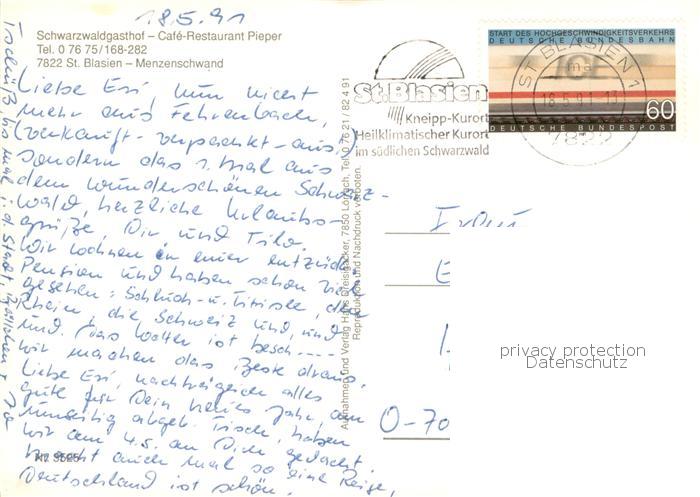 18.5.91
Schwarzwaldgasthof – Café-Restaurant Pieper
Tel. 0 76 75/168-282
7822 St. Blasien – Menzenschwand
Liebe Evi, nun nicht
mehr aus Fehrenbach,
(verkauft - verpachtet - aus!)
sondern das 1. Mal aus
dem wunderschönen Schwarz-
wald, herzliche Urlaubs-
grüße, Dir und Tilo.
Wir wohnen in einer entzück.
Pension und haben schon viel
gesehen: Schluch- u. Titisee, den
Rhein, die Schweiz und, und
und. Das Wetter ist besch.....
wir machen das Beste draus.
Liebe Evi, nachträglich alles
gute für Dein neues Jahr, am
Tisch, haben
wir am 4.5. an Dich gedacht.
Macht auch mal so eine Reise,
Deutschland ist schön.
Tschüß, bis mal i. d. Stadt,
Nr. 3525
Aufnahmen und Verlag Hans Dreisigacker, 7850 Lörrach, Tel. 0 76 21 / 82 4 91
Reproduktion und Nachdruck verboten.
St. Blasien
Kneipp-Kurort
Heilklimatischer Kurort
im südlichen Schwarzwald
ST. BLASIEN 1
ma
18.5.91-13
7822
START DES HOCHGESCHWINDIGKEITSVERKEHRS
DEUTSCHE BUNDESBAHN
ICE
60
DEUTSCHE BUNDESPOST
Frau
E
O-70
privacy protection
Datenschutz